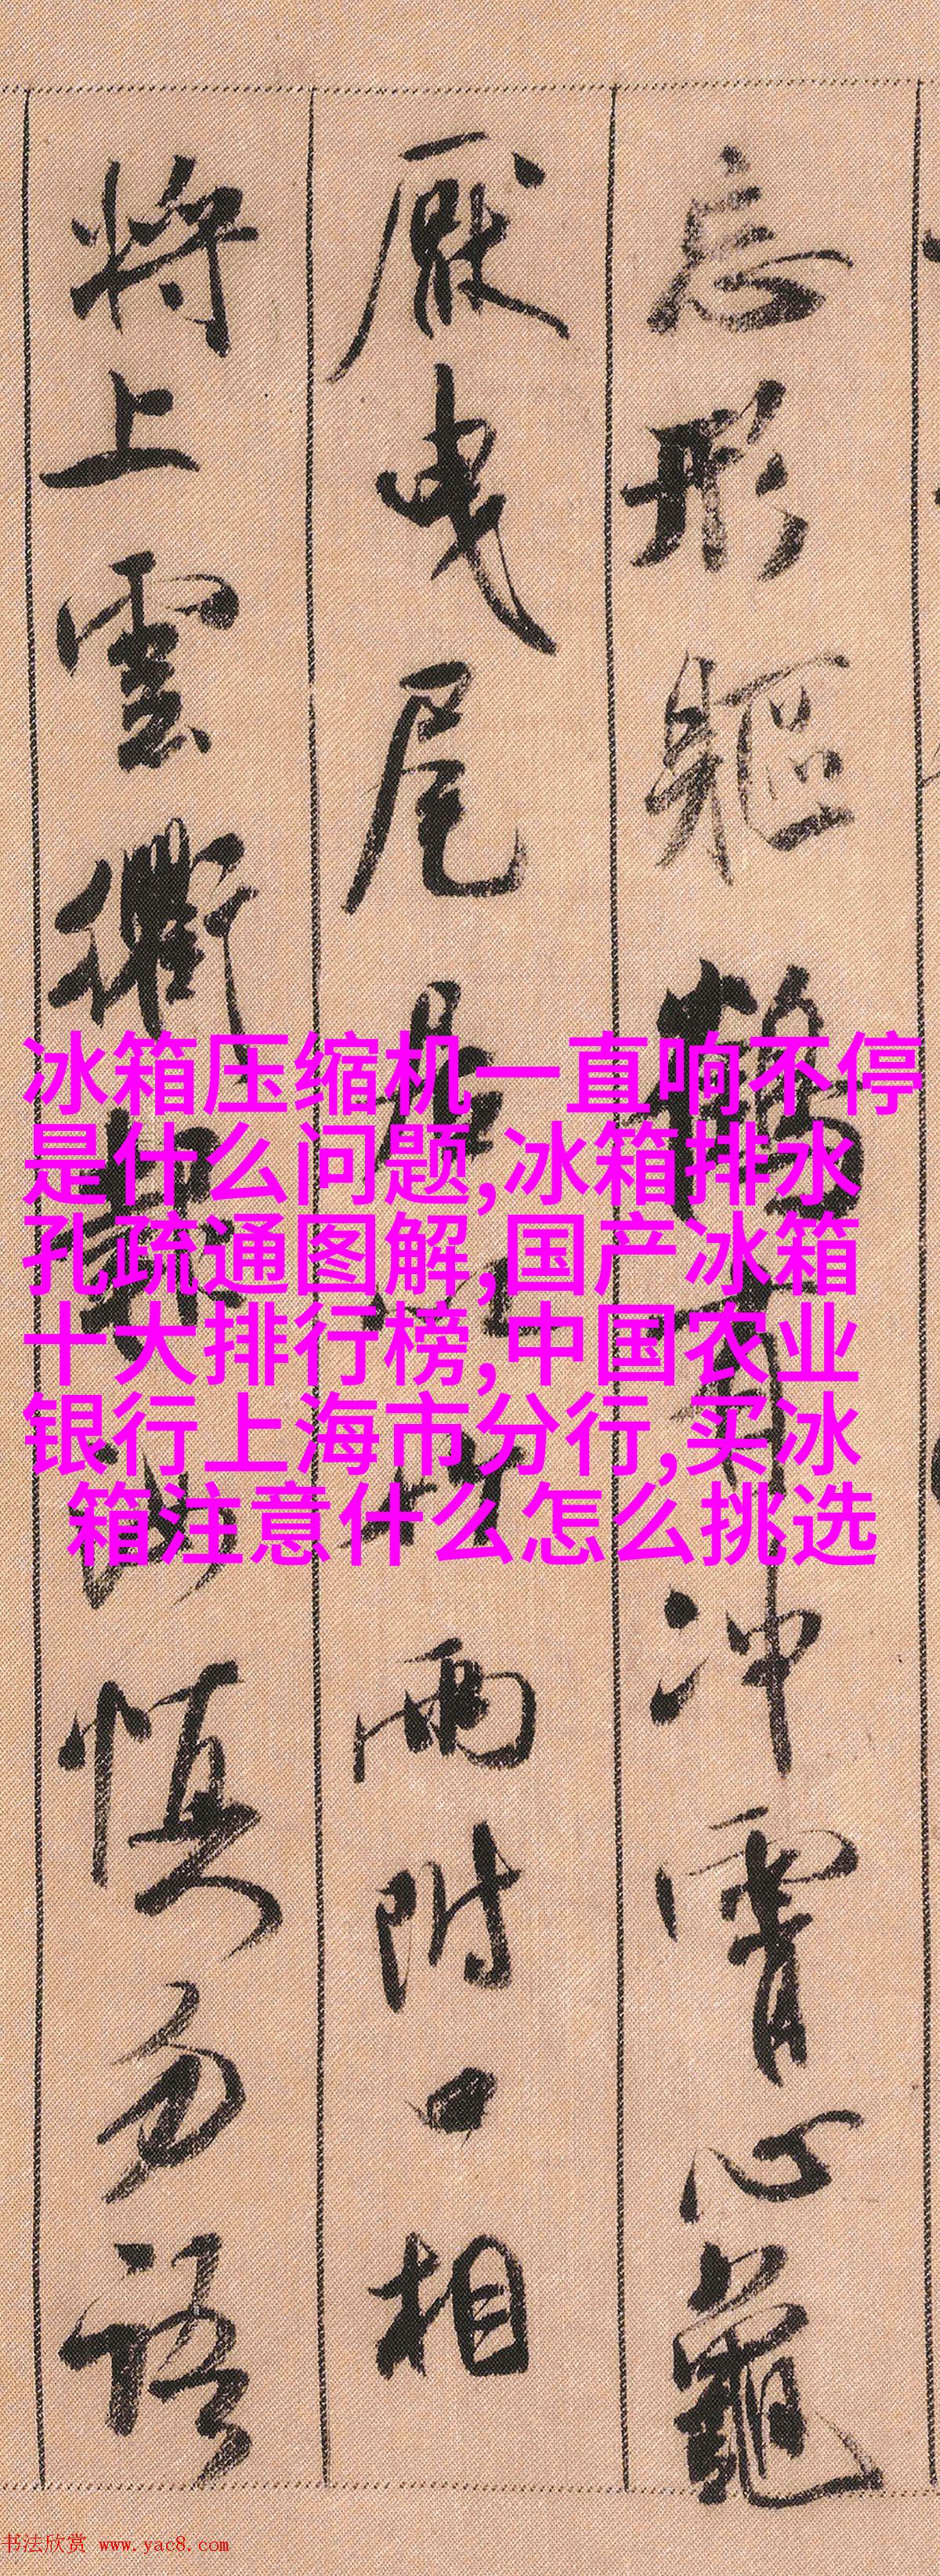 忘形軀鶴有冲霄心龜
厭曳尾居以竹兩附口相
將上雲衢報汝慎勿語
冰箱压缩机一直响不停
是什么问题,冰箱排水
孔疏通图解,国产冰箱
十大排行榜,中国农业
银行上海市分行,买冰
箱注意什么怎么挑选
书法欣赏 www.yac8.com